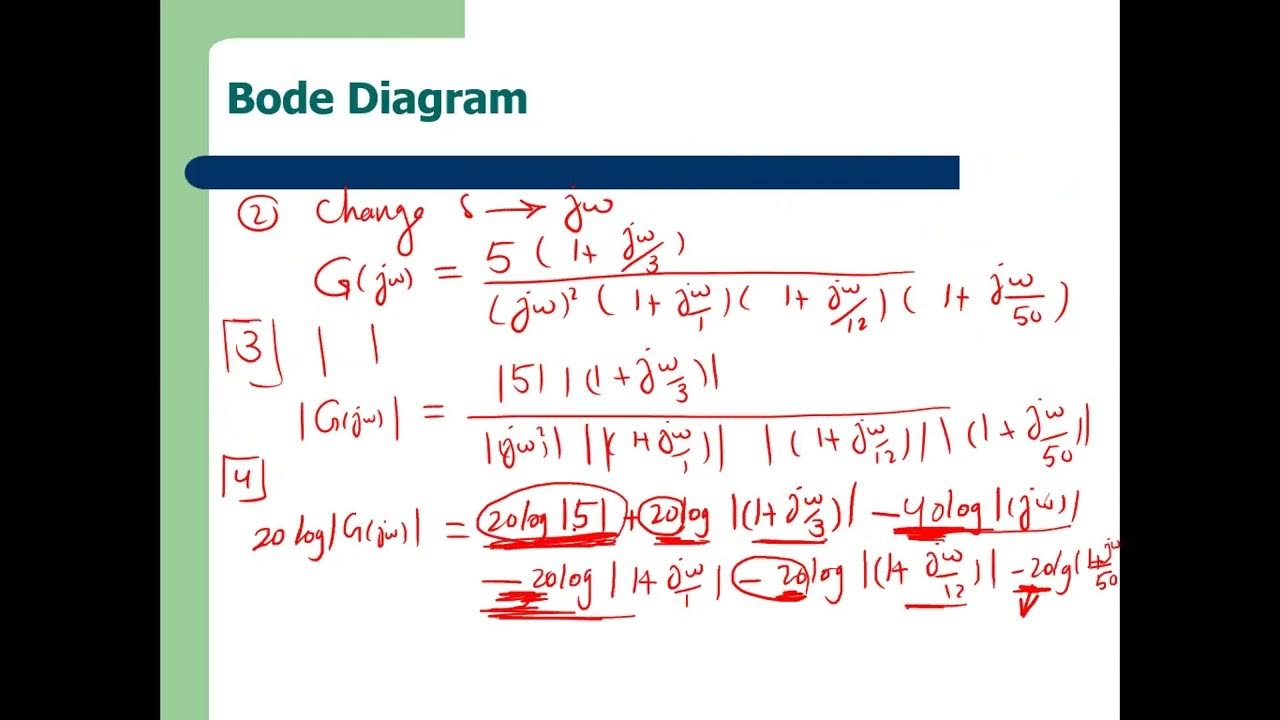 Bode Diagram
② Change s → jω
G(jω) = 5 (1 + jω/3) / (jω)² (1 + jω/1) (1 + jω/12) (1 + jω/50)
3 | |
|G(jω)| = |5| |(1 + jω/3)| / |(jω²)| |(1 + jω/1)| |(1 + jω/12)| |(1 + jω/50)|
4
20 log|G(jω)| = 20 log |5| + 20 log |(1 + jω/3)| - 40 log |(jω)|
- 20 log |1 + jω/1| - 20 log |(1 + jω/12)| - 20 lg(1 + jω/50